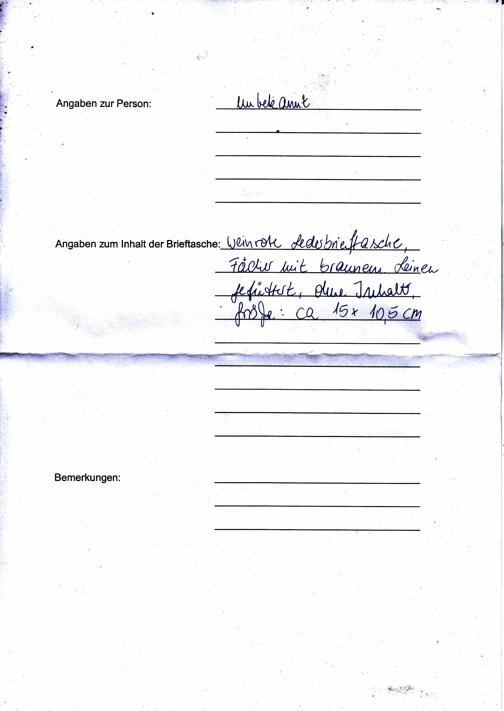 Angaben zur Person: unbekannt
Angaben zum Inhalt der Brieftasche: weinrote Lederbrieftasche,
Fächer mit braunem Leinen
gefüttert, ohne Inhalt,
Größe: ca 15x 10,5 cm
Bemerkungen: